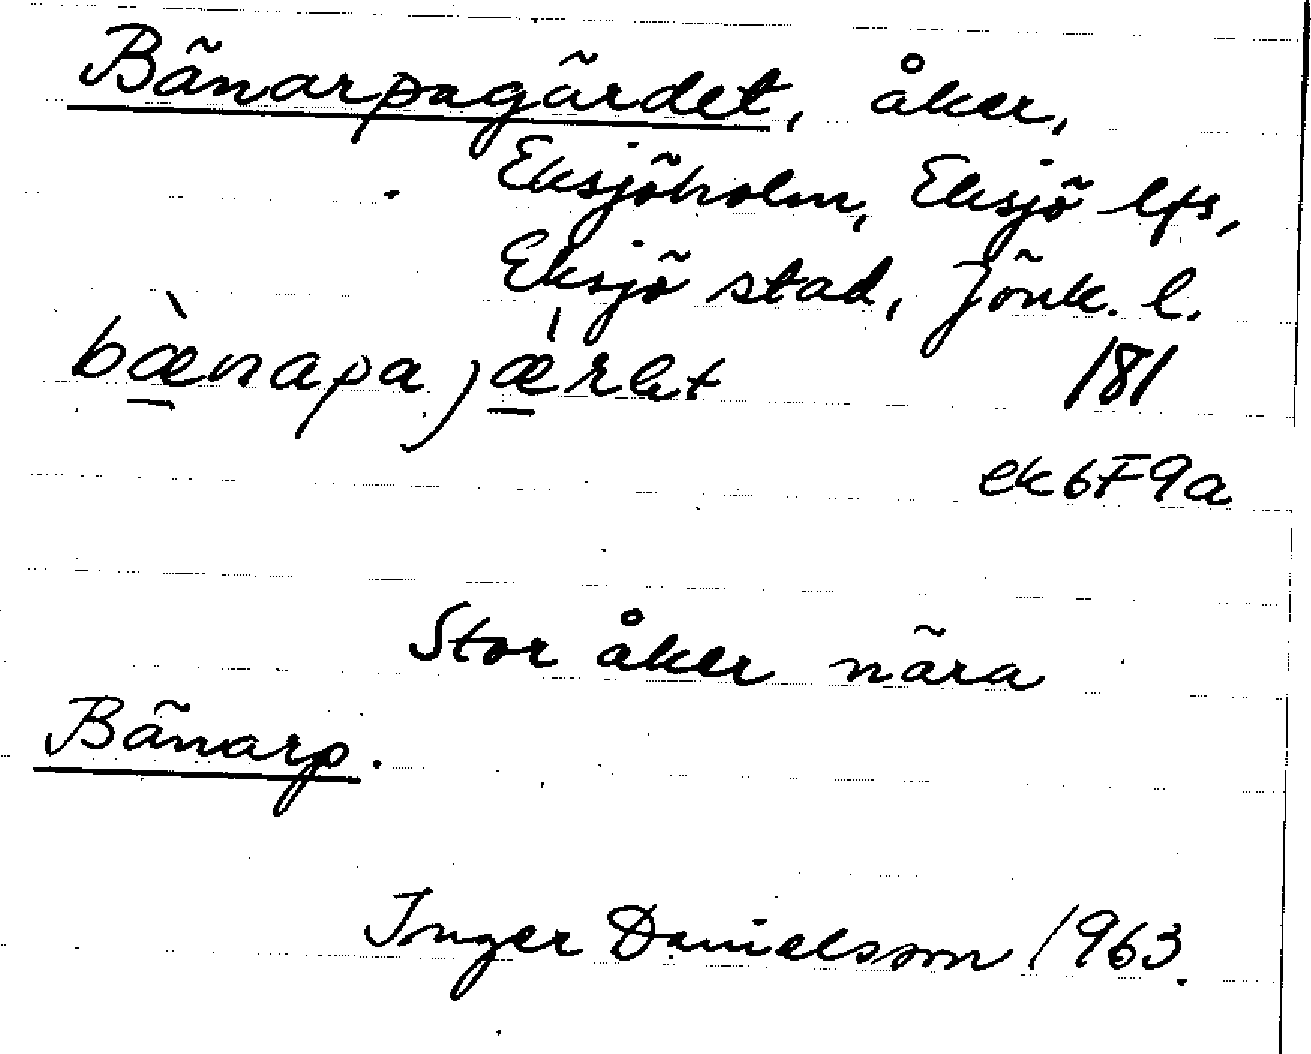 Bänarpagärdet, åker,
Eksjöholm, Eksjö lfs,
Eksjö stad, Jönk. l.
bæ̀napa jǽrlet 181
ek 6F9a
Stor åker nära
Bänarp.
Inger Danielsson 1963.